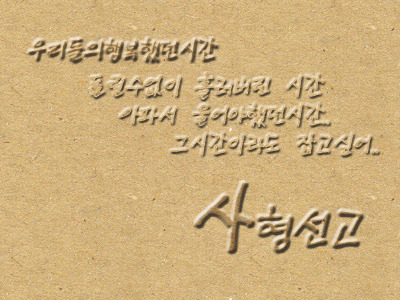 우리들의행복했던시간
돌릴수없이 흘러버린 시간
아파서 울어야했던시간..
그시간이라도 잡고싶어..
사형선고